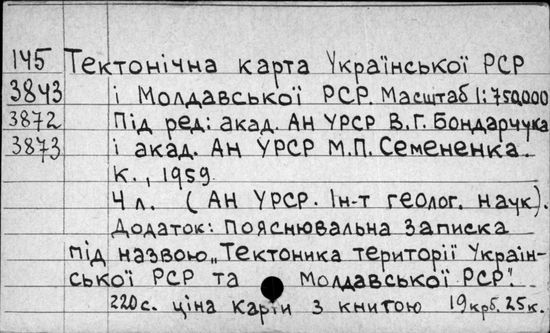 145 Тектонічна карта Української РСР
3843 і Молдавської РСР. Масштаб 1:750,000
3872 Під ред: акад. Ан УРСР В.Г. Бондарчука
3873 і акад. Ан УРСР М.П. Семененка.
К., 1959
4 л. (Ан УРСР. Ін-т геолог. наук).
Додаток: Пояснювальна записка
під назвою „Тектоника території Україн-
ської РСР та Молдавської РСР".
220 с. ціна карти з книгою 19 крб. 25 к.